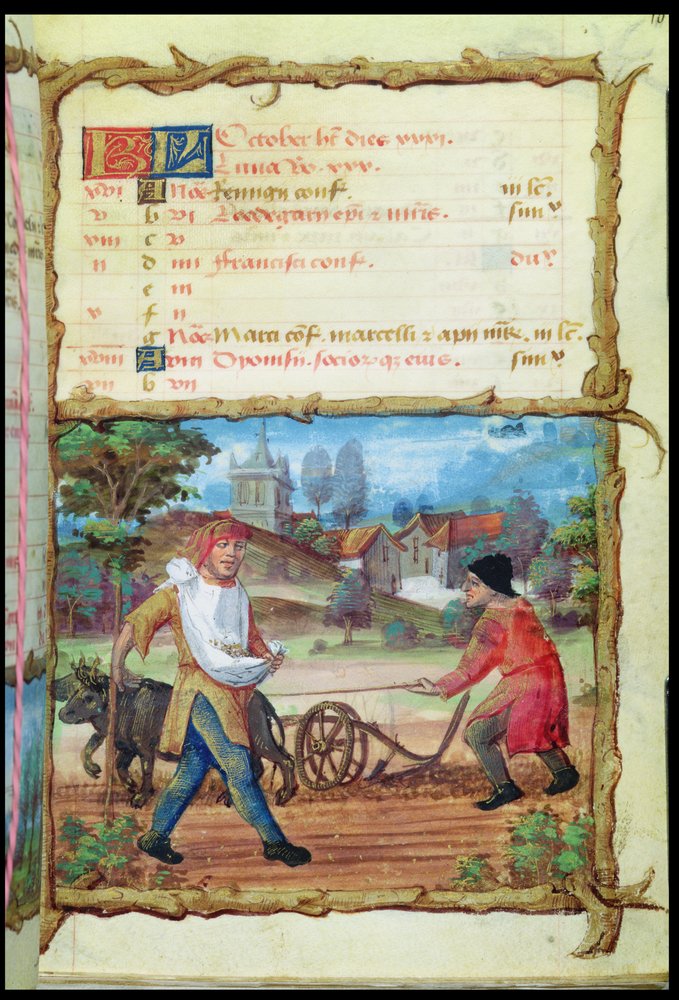 KL October ht dies xxxi.
Luna vo. xxx.
xvi A Noē Remigii conf. iii lc.
v b vi Leodegarii epi & mris. simp
xiii c v
ii d iiii Francisci conf. dup
e iii
x f ii
g Noē Marci cōf. marcelli & apu mr̄e. iii lc.
xviii A viii Dyonisii. socior qz eius. simp
vii b vii